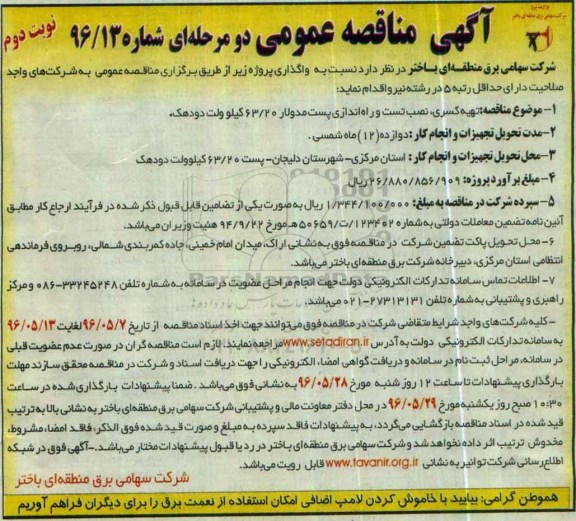 آگهی مناقصه عمومی دو مرحله‌ای شماره ۹۶/۱۳
نوبت دوم
شرکت سهامی برق منطقه‌ای باختر در نظر دارد نسبت به واگذاری پروژه زیر از طریق برگزاری مناقصه عمومی به شرکت‌های واجد
صلاحیت دارای حداقل رتبه ۵ در رشته نیرو اقدام نماید:
۱- موضوع مناقصه: تهیه کسری، نصب تست و راه اندازی پست مدولار ۶۳/۲۰ کیلو ولت دودهک.
۲- مدت تحویل تجهیزات و انجام کار: دوازده (۱۲) ماه شمسی.
۳- محل تحویل تجهیزات و انجام کار: استان مرکزی- شهرستان دلیجان- پست ۶۳/۲۰ کیلوولت دودهک
۴- مبلغ برآورد پروژه: ۲۶/۸۸۰/۸۵۶/۹۰۹ ریال
۵- سپرده شرکت در مناقصه به مبلغ: ۱/۳۴۴/۱۰۰/۰۰۰ ریال به صورت یکی از تضامین قابل قبول ذکر شده در فرآیند ارجاع کار مطابق
آئین نامه تضمین معاملات دولتی به شماره ۱۲۳۴۰۲/ت۵۰۶۵۹هـ مورخ ۹۴/۹/۲۲ هئیت وزیران می‌باشد.
۶- محل تحویل پاکت تضمین شرکت در مناقصه فوق به نشانی اراک، میدان امام خمینی، جاده کمربندی شمالی، روبروی فرماندهی
انتظامی استان مرکزی، دبیرخانه شرکت برق منطقه‌ای باختر می‌باشد.
۷- اطلاعات تماس سامانه تدارکات الکترونیکی دولت جهت انجام مراحل عضویت در سامانه به شماره تلفن ۳۳۲۴۵۲۴۸-۰۸۶ و مرکز
راهبری و پشتیبانی به شماره تلفن ۲۷۳۱۳۱۳۱-۰۲۱ می‌باشد.
-کلیه شرکت‌های واجد شرایط متقاضی شرکت در مناقصه فوق می‌توانند جهت اخذ اسناد مناقصه از تاریخ ۹۶/۰۵/۷ لغایت ۹۶/۰۵/۱۳
به سامانه تدارکات الکترونیکی دولت به آدرس www.setadiran.ir مراجعه نمایند. لازم است مناقصه گران در صورت عدم عضویت قبلی
در سامانه، مراحل ثبت نام در سامانه و دریافت گواهی امضاء الکترونیکی را جهت دریافت اسناد و شرکت در مناقصه محقق سازند مهلت
بارگذاری پیشنهادات تا ساعت ۱۲ روز شنبه مورخ ۹۶/۰۵/۲۸ به نشانی فوق می‌باشد. ضمنا پیشنهادات بارگذاری شده در ساعت
۱۰:۳۰ صبح روز یکشنبه مورخ ۹۶/۰۵/۲۹ در محل دفتر معاونت مالی و پشتیبانی شرکت سهامی برق منطقه‌ای باختر به نشانی بالا به ترتیب
قید شده در اسناد مناقصه بازگشایی می‌گردد، به پیشنهادات فاقد سپرده به مبلغ و صورت قید شده فوق الذکر، فاقد امضاء، مشروط،
مخدوش ترتیب اثر داده نخواهد شد و شرکت سهامی برق منطقه‌ای باختر در رد یا قبول پیشنهادات مختار می‌باشد.-آگهی فوق در شبکه
اطلاع رسانی شرکت توانیر به نشانی www.tavanir.org.ir قابل رویت می‌باشد.
شرکت سهامی برق منطقه‌ای باختر
هموطن گرامی: بیایید با خاموش کردن لامپ اضافی امکان استفاده از نعمت برق را برای دیگران فراهم آوریم